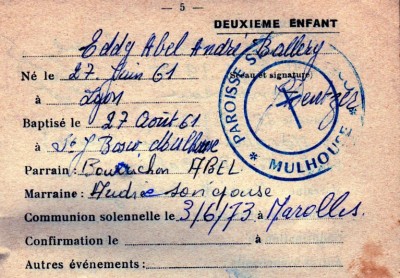 — 5 —
DEUXIEME ENFANT
Eddy Abel André Ballery
Né le 27 Juin 61
(Sceau et signature)
à Lyon
Baptisé le 27 Août 61
à St J Bosco Mulhouse
PAROISSE S
* MULHOUSE *
Parrain: Bourrichon ABEL
Marraine: Andrée son épouse
Communion solennelle le 3/6/73 à Marolles
Confirmation le à
Autres événements: